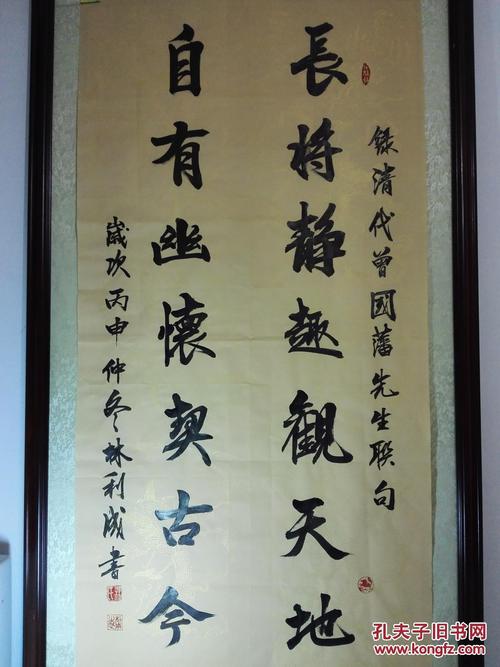 錄清代曾國藩先生联句
長将静趣觀天地
自有幽懷契古今
歲次丙申仲冬林利成書
孔夫子旧书网
www.kongfz.com